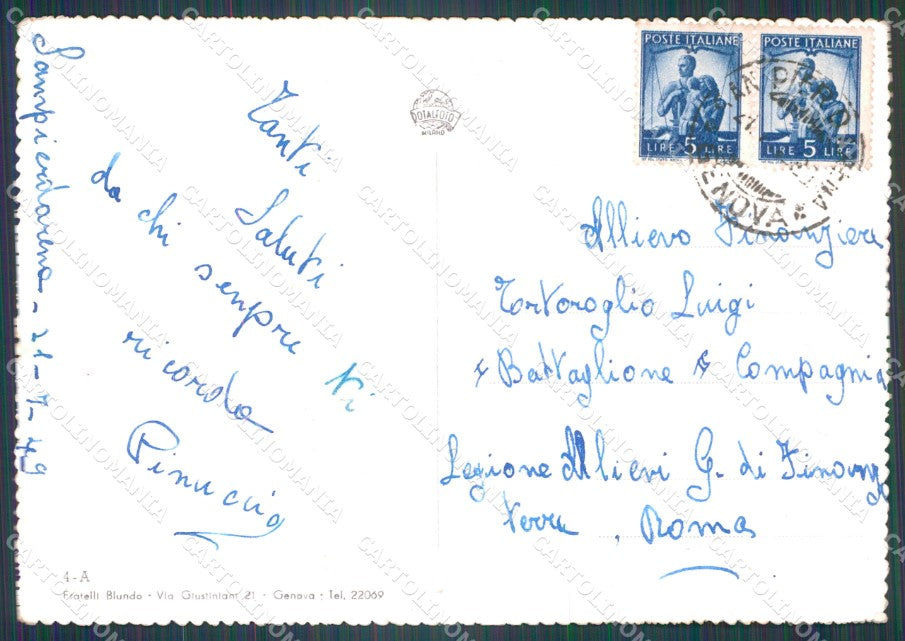 Sampierdarena - 21-7-49
Tanti Saluti
da chi senpre ti
ricorda
Pinuccia
4-A
Fratelli Blundo • Via Giustiniani 21 • Genova • Tel. 22069
DOTALFOTO
MILANO
POSTE ITALIANE
LIRE 5 LIRE
POSTE ITALIANE
LIRE 5 LIRE
GENOVA
Allievo Finanziera
Tortoroglio Luigi
Battaglione Compagnia
Legione Allievi G. di Finanz
Roma
CARTOLINOMANIA